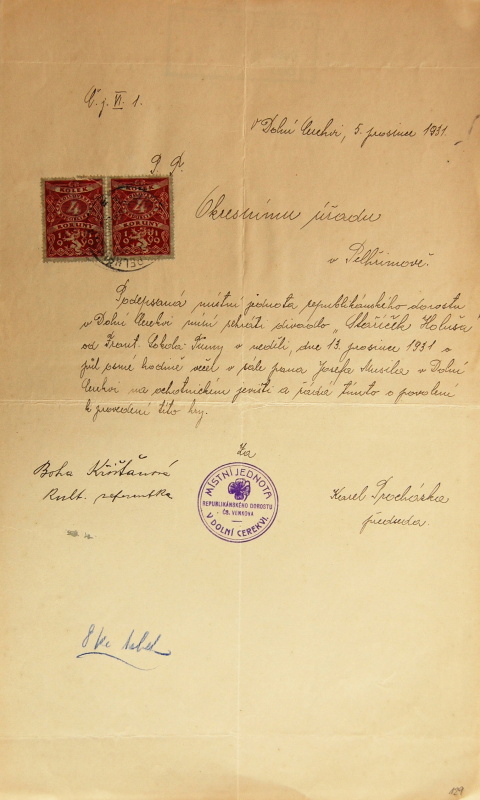 Č. j. VI. 1.
V Dolní Cerekvi, 5. prosince 1931.
P. T.
KOLEK KOLEK
4 4
KORUNY KORUNY
Okresnímu úřadu
v Pelhřimově.
Podepsaná místní jednota republikánského dorostu
v Dolní Cerekvi míní sehráti divadlo „Staříček Holuša"
od Frant. Sokola-Tůmy v neděli, dne 13. prosince 1931 o
půl osmé hodině večer v sále pana Josefa Musila v Dolní
Cerekvi na ochotnickém jevišti a žádá tímto o povolení
k provedení této hry.
Za
Boha Křišťanová
kult. referentka
MÍSTNÍ JEDNOTA
REPUBLIKÁNSKÉHO DOROSTU
ČS. VENKOVA
V DOLNÍ CEREKVI.
Karel Procháska
předseda.
8 Kč
129